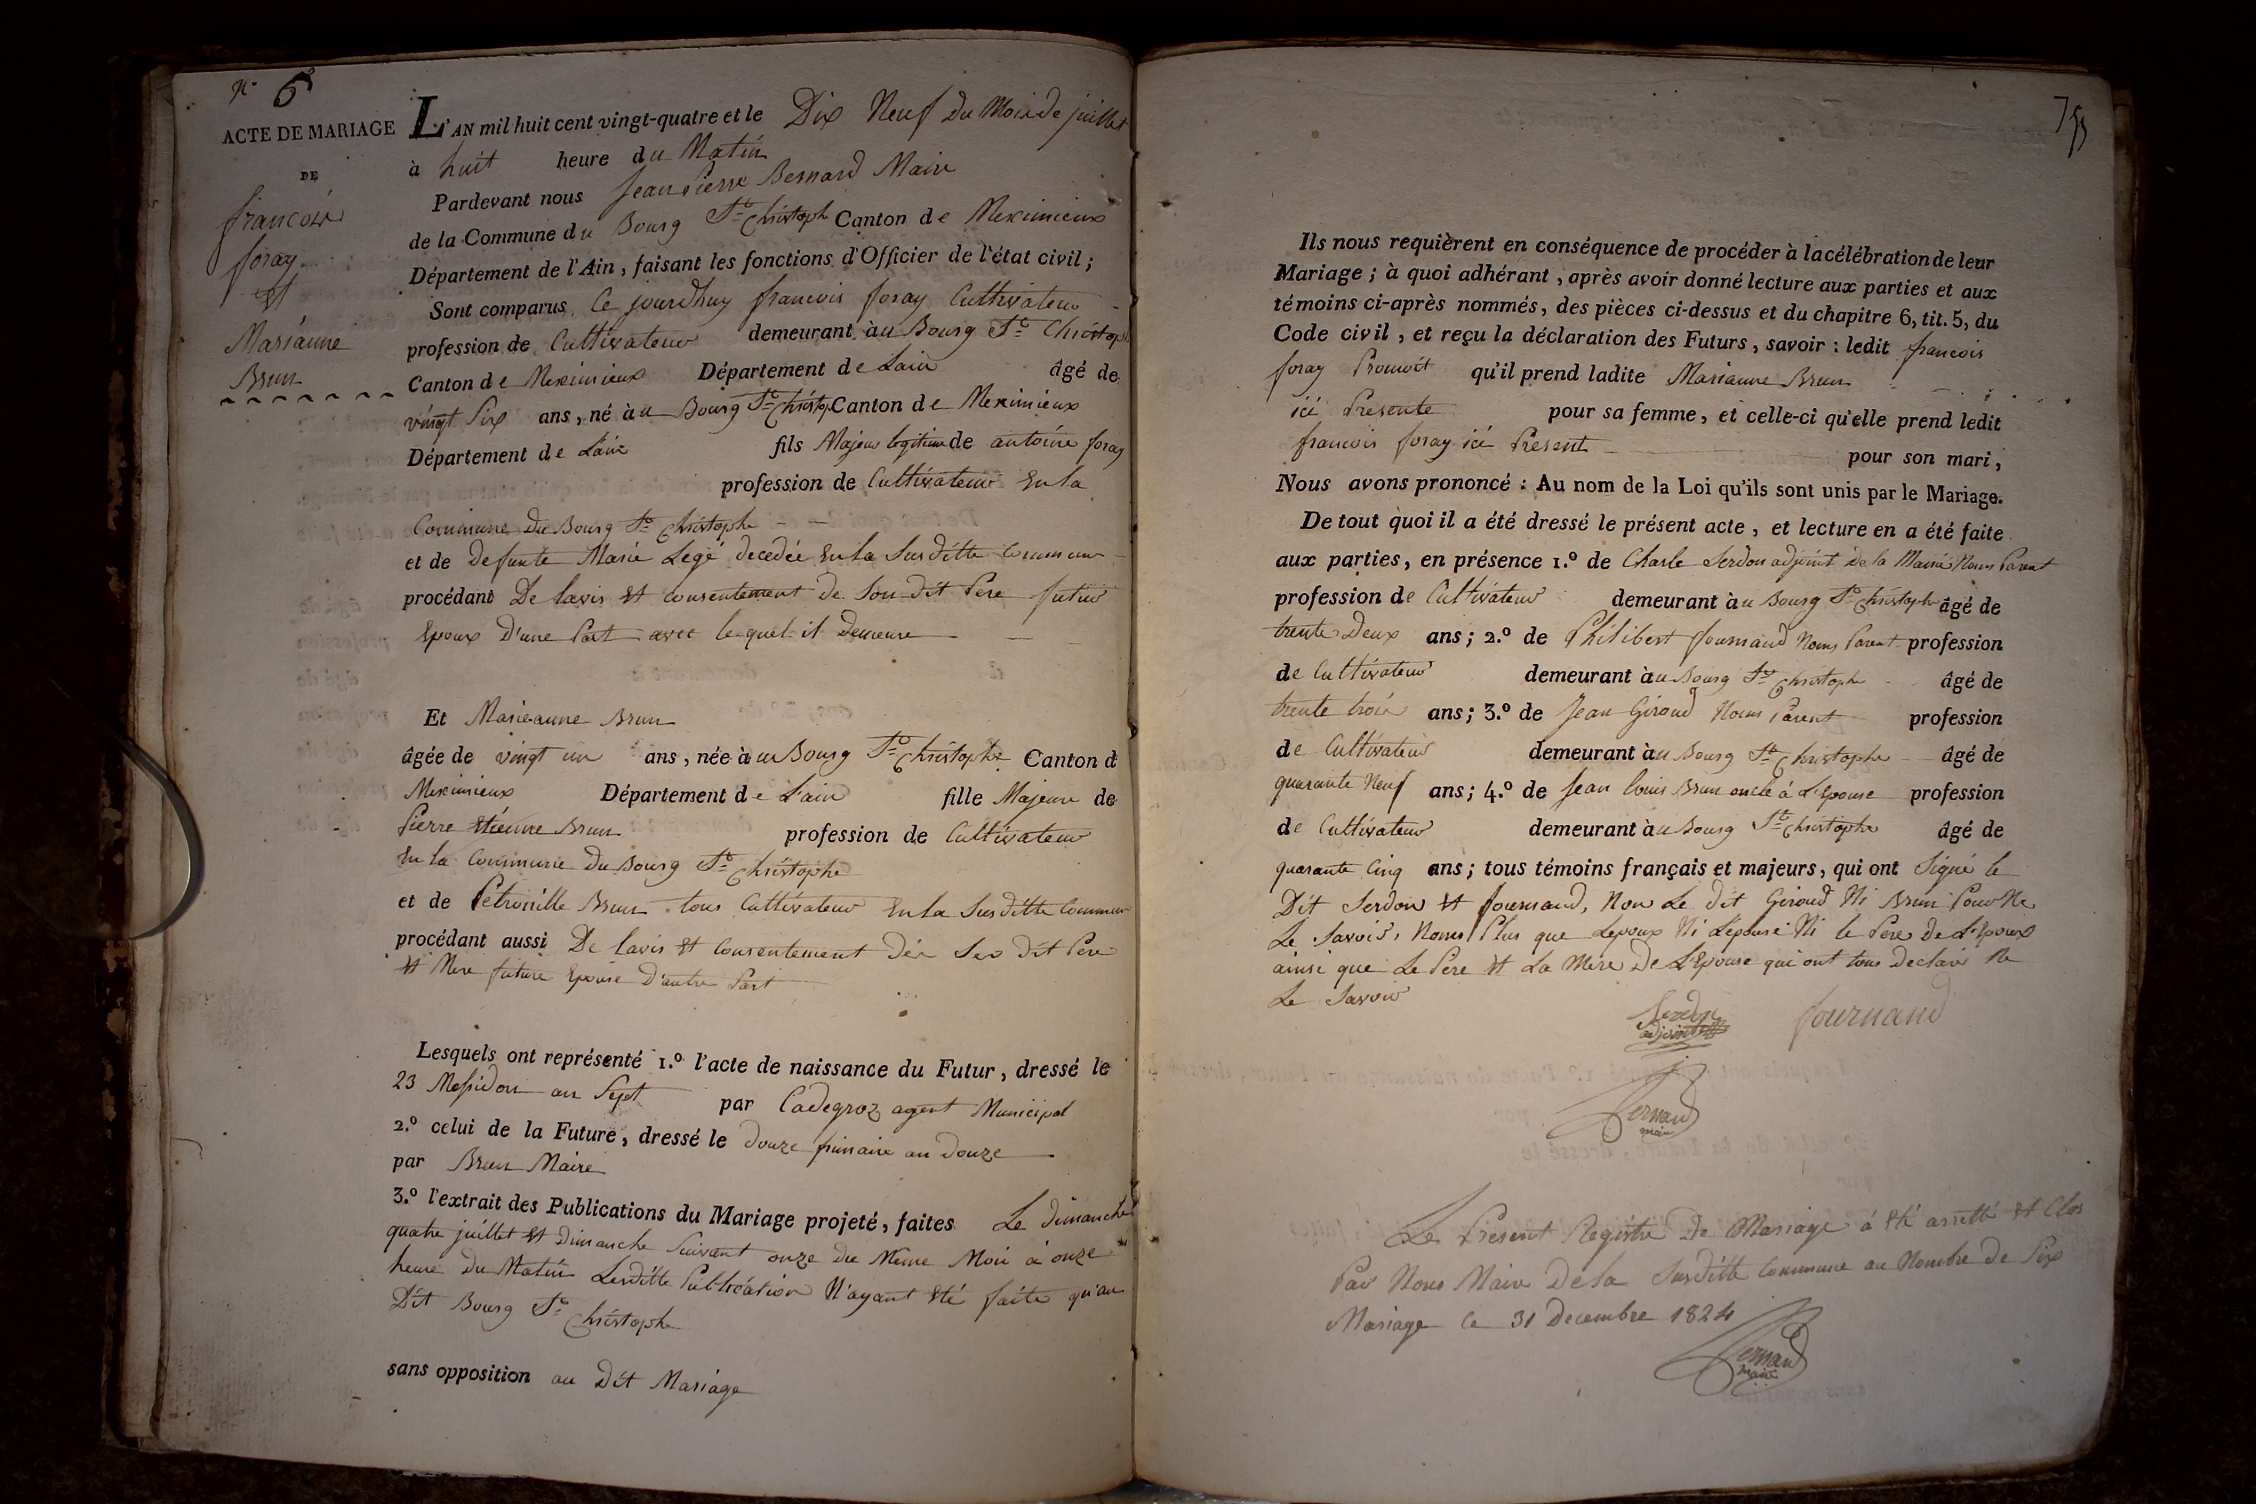 N° 6
ACTE DE MARIAGE
DE
francois
foray
et
Marianne
Brun
L'AN mil huit cent vingt-quatre et le Dix Neuf Du Mois de juillet
à huit heure du Matin
Pardevant nous Jean Pierre Bernard Maire
de la Commune du Bourg St Christoph Canton de Meximieux
Département de l'Ain, faisant les fonctions d'Officier de l'état civil;
Sont comparus Ce jourdhuy francois foray Cultivateur
profession de Cultivateur demeurant àu Bourg St Christop
Canton de Meximieux Département de Lain âgé de
vingt Six ans, né àu Bourg St Christop Canton de Meximieux
Département de Lain fils Majeur legitime de antoine foray
profession de Cultivateur En la
Commune Du Bourg St Christophe
et de Defunte Marie Legé decedée En la Susditte Commune
procédant De lavis Et consentement de Son dit Pere futur
Epoux D'une Part avec le quel il Demeure
Et Marieanne Brun
âgée de vingt un ans, née àu Bourg St Christophe Canton d
Meximieux Département de L'ain fille Majeure de
Pierre Etienne Brun profession de Cultivateur
En la Commune Du Bourg St Christophe
et de Petronille Brun tous Cultivateur En la Susditte Commune
procédant aussi De lavis Et Consentement Dés Ses Dit Pere
Et Mere future Epouse D'autre Part
Lesquels ont représenté 1.° l'acte de naissance du Futur, dressé le
23 Messidor an Sept par Cadegroz agent Municipal
2.° celui de la Future, dressé le douze frimaire an Douze
par Brun Maire
3.° l'extrait des Publications du Mariage projeté, faites Le dimanche
quatre juillet Et Dimanche Suivant onze du Meme Moi à onze
heure Du Matin Lesditte Publication N'ayant Eté faite qu'au
Dit Bourg St Christophe
sans opposition au Dit Mariage
Ils nous requièrent en conséquence de procéder à la célébration de leur
Mariage; à quoi adhérant, après avoir donné lecture aux parties et aux
témoins ci-après nommés, des pièces ci-dessus et du chapitre 6, tit. 5, du
Code civil, et reçu la déclaration des Futurs, savoir: ledit francois
foray Promoit qu'il prend ladite Marianne Brun
ici Presente pour sa femme, et celle-ci qu'elle prend ledit
francois foray ici Present pour son mari,
Nous avons prononcé: Au nom de la Loi qu'ils sont unis par le Mariage.
De tout quoi il a été dressé le présent acte, et lecture en a été faite
aux parties, en présence 1.° de Charle Serdon adjoint de la Mairie Nom Parent
profession de Cultivateur demeurant àu Bourg St Christophe âgé de
trente Deux ans; 2.° de Philibert fournand Nom Parent profession
de Cultivateur demeurant àu Bourg St Christophe âgé de
trente trois ans; 3.° de Jean Giroud Nom Parent profession
de Cultivateur demeurant àu Bourg St Christophe âgé de
quarante Neuf ans; 4.° de Jean Louis Brun oncle à L'Epouse profession
de Cultivateur demeurant àu Bourg St Christophe âgé de
quarante Cinq ans; tous témoins français et majeurs, qui ont Signé le
Dit Serdon Et fournand, Non Le Dit Giroud Ni Brun Pour Ne
Le Savoir, Nom Plus que Lepoux Ni Lepouse Ni le Pere De L'Epoux
ainsi que Le Pere Et La Mere De L'Epouse qui ont tous Declaré Ne
Le Savoir
Serdon
adjoint
fournand
Bernard
maire
Le Present Registre De Mariage à Eté arretté Et Clos
Par Nous Maire De la Susditte Commune au Nombre de Six
Mariage Ce 31 Decembre 1824
Bernard
maire